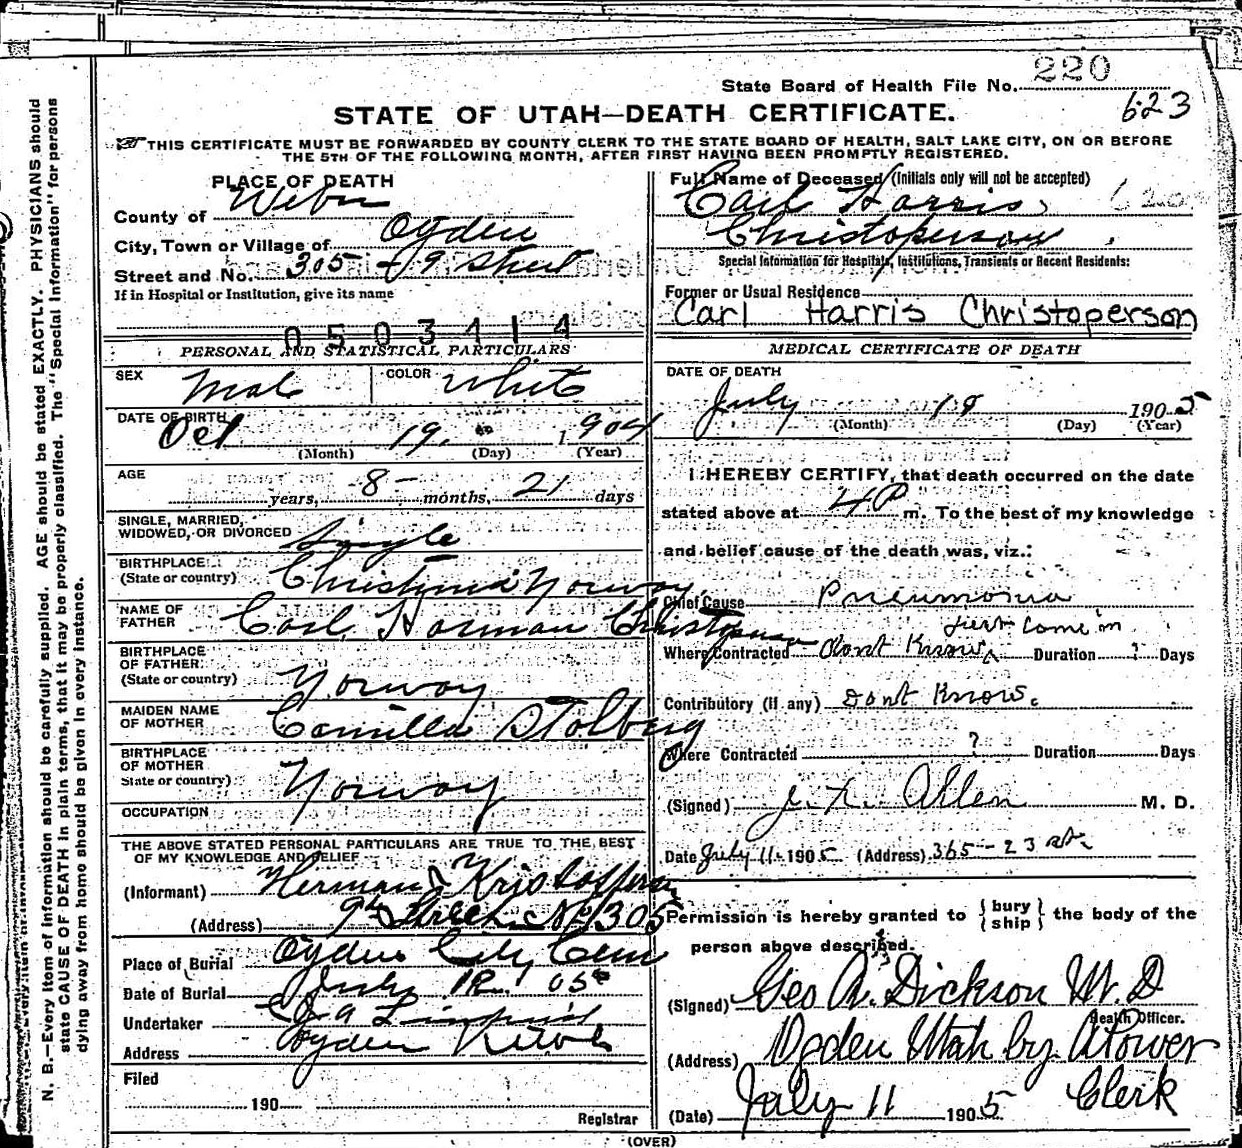 State Board of Health File No. 220
623
STATE OF UTAH—DEATH CERTIFICATE.
THIS CERTIFICATE MUST BE FORWARDED BY COUNTY CLERK TO THE STATE BOARD OF HEALTH, SALT LAKE CITY, ON OR BEFORE
THE 5TH OF THE FOLLOWING MONTH, AFTER FIRST HAVING BEEN PROMPTLY REGISTERED.
N. B.—Every item of information should be carefully supplied. AGE should be stated EXACTLY. PHYSICIANS should
state CAUSE OF DEATH in plain terms, that it may be properly classified. The "Special Information" for persons
dying away from home should be given in every instance.
PLACE OF DEATH
County of Weber
City, Town or Village of Ogden
Street and No. 305 - 9 Street
If in Hospital or Institution, give its name
0503414
PERSONAL AND STATISTICAL PARTICULARS
SEX Male COLOR White
DATE OF BIRTH
Oct 19. 1904
(Month) (Day) (Year)
AGE
years, -8- months, 21 days
SINGLE, MARRIED,
WIDOWED, OR DIVORCED Single
BIRTHPLACE
(State or country) Christynia Norway
NAME OF
FATHER Carl Horman Christoperson
BIRTHPLACE
OF FATHER
(State or country) Norway
MAIDEN NAME
OF MOTHER Camilla Stolberg
BIRTHPLACE
OF MOTHER
State or country) Norway
OCCUPATION
THE ABOVE STATED PERSONAL PARTICULARS ARE TRUE TO THE BEST
OF MY KNOWLEDGE AND BELIEF
(Informant) Herman
(Address) 9th Street No 305
Place of Burial Ogden City Cem
Date of Burial July 12. 05
Undertaker
Address Ogden Utah
Filed
190
Registrar
Full Name of Deceased (Initials only will not be accepted)
Carl Harris
Christoperson
620
Special Information for Hospitals, Institutions, Transients or Recent Residents:
Former or Usual Residence
Carl Harris Christoperson
MEDICAL CERTIFICATE OF DEATH
DATE OF DEATH
July 1905
(Month) (Day) (Year)
I HEREBY CERTIFY, that death occurred on the date
stated above at 4 P m. To the best of my knowledge
and belief cause of the death was, viz.:
Chief Cause Pneumonia
just come in
Where Contracted dont Know Duration ? Days
Contributory (if any) Dont Know.
Where Contracted ? Duration Days
(Signed) Allen M. D.
Date July 11. 1905 (Address) 365 - 23 st.
Permission is hereby granted to { bury ship } the body of the
person above described.
(Signed) Geo A. Dickson M. D
Health Officer.
(Address) Ogden Utah by A Power
Clerk
(Date) July 11 1905
(OVER)